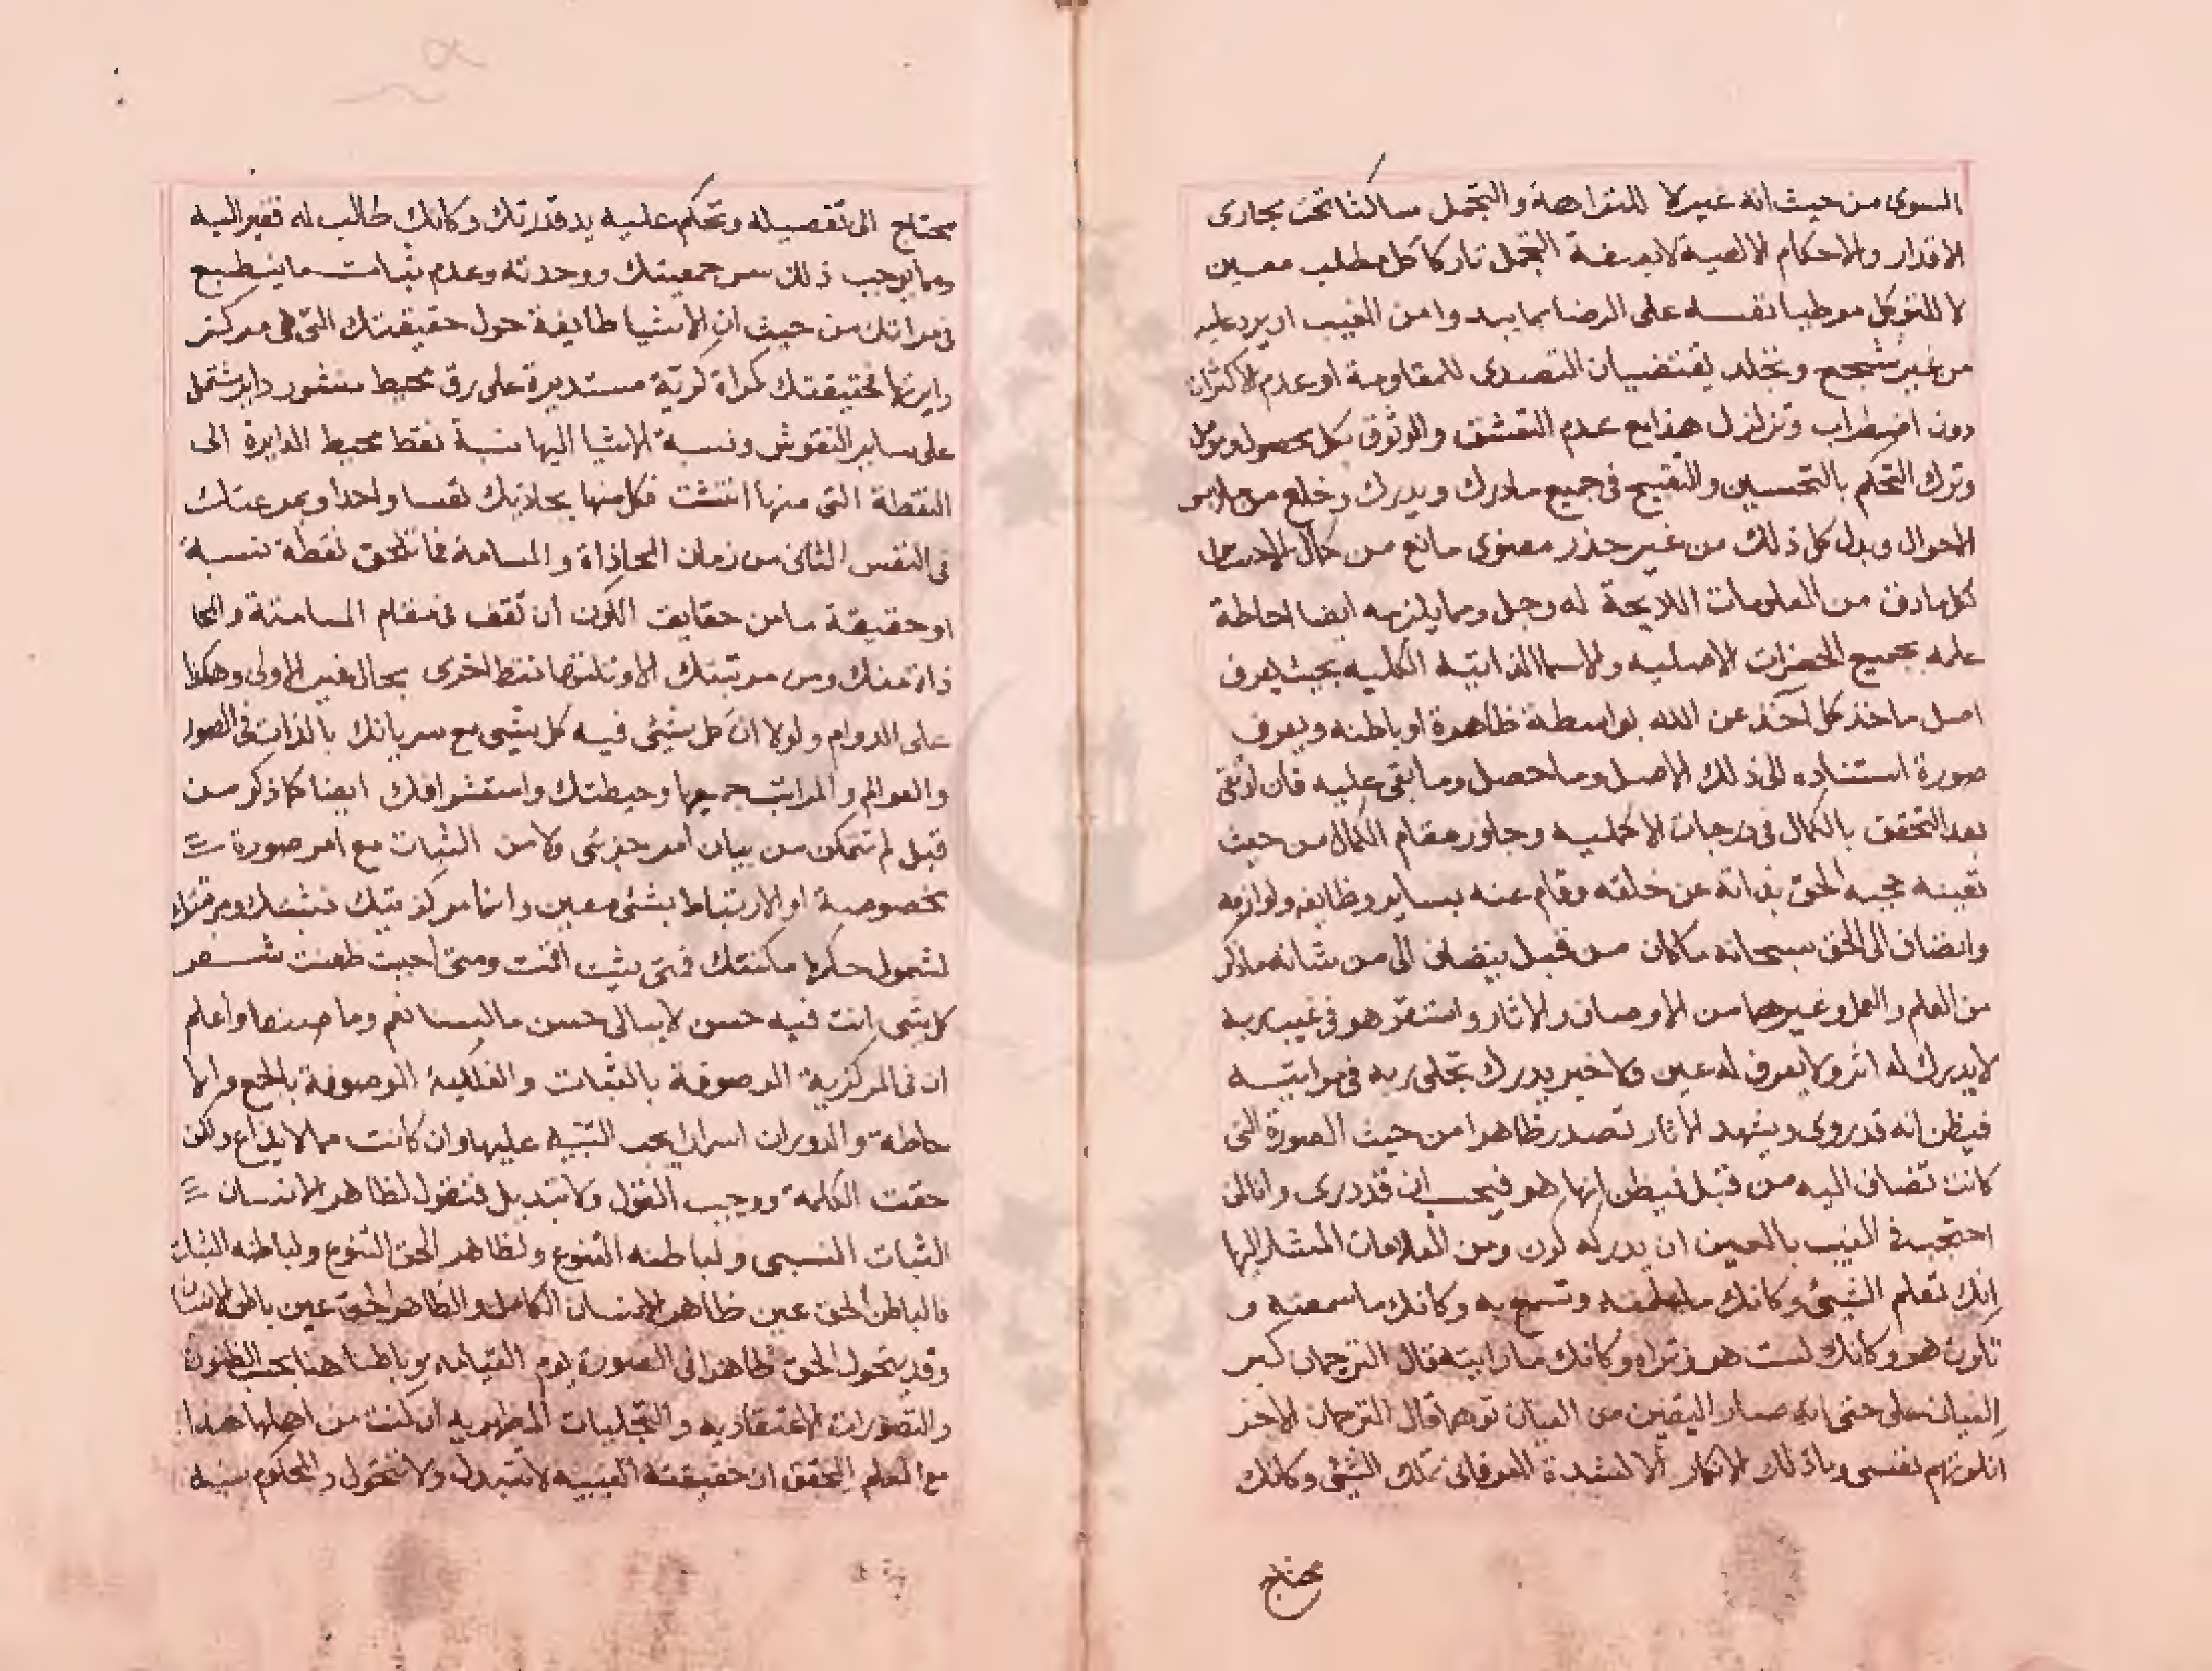 السوى من حيث انه غير لا للنزاهة والتجمل ساكنا تحت مجارى
الاقدار والاحكام الالهية لا بصفة التجمل تاركا كل مطلب معين
لا للتوكل موطيا نفسه على الرضا بما يبدوا من الغيب او يرد عليه
من غير تشجع وتجلد يقتضيان التصدى للمقاومة او عدم الاكتراث
دون اضطراب وتزلزل هذا مع عدم التعشق والوثوق بكل محصول
وترك التحكم بالتحسين والتقبيح فى جميع ما ادرك ويدرك وخلع ملابس
الاحوال وبدل كل ذلك من غير حذر معنوى مانع من كمال
كل ما دق من العلومات اللايحة له وجل ومما يلزمه ايضا احاطة
علمه بجميع الحضرات الاصلية والاسما الذاتية الكلية بحيث يعرف
اصل ماخذ كل آخذ عن الله بواسطة ظاهرة او باطنه ويعرف
صورة استناده الى ذلك الاصل وما حصل وما بقى عليه فان ارتقى
بعد التحقق بالكمال فى درجات الاكملية وجاوز مقام الكمال من حيث
تعينه حجبه الحق بذاته عن خلقه وقام عنه بساير وظايفه ولوازمه
وانضاف الى الحق سبحانه ما كان من قبل ينضاف الى من شانه ما ذكر
من العلم والعمل وغيرهما من الاوصاف والاثار واستقر هو فى غيب ربه
لا يدرك له اثر ولا يعرف له عين ولا خبر يدرك تجلى ربه فى مراتبه
فيظن انه قد روى ويشهد الاثار تصدر ظاهرا من حيث الصورة التى
كانت تضاف اليه من قبل فيظن انها هو فيحسب ان قد درى وانالن
احتجب فى الغيب بالعين ان يدركه كون ومن العلامات المشار اليها
انك تعلم الشيء وكانك ما علمته وتسمع به وكانك ما سمعته و
تكون هو وكانك لست هو وتراه وكانك ما رايته قال الترجمان كبر
العيان على حتى انه صار اليقين من العيان توهما وقال الترجمان الاخر
نفسى وما ذاك الانكار الا لشدة العرفان تملك الشيء وكانك
محتاج
محتاج الى تفصيله وتحكم عليه يد قدرتك وكانك طالب له فقير اليه
ومما يوجب ذلك سر جمعيتك ووحدته وعدم ثبات ما ينطبع
فى مراتك من حيث ان الاشيا طايفة حول حقيقتك التى هى مركز
دايرتها فحقيقتك كمراة كرية مستديرة على رق محيط منشور داير مشتمل
على ساير النقوش ونسبة الاشيا اليها نسبة نقط محيط الدايرة الى
النقطة التى منها انتشت فكل منها يحاذيك نفسا واحدا ويمر عنك
فى النفس الثانى من زمان المحاذاة والمسامتة فما تلحق نقطة نسبة
او حقيقة ما من حقايق الكون ان تقف فى مقام المسامتة والمحا
ذاة معك ومن مرتبتك الا وتلتها نقط اخرى بحال غير الاولى وهكذا
على الدوام ولولا ان كل شئى فيه كل شيى مع سريانك بالذات فى الصور
والعوالم والمراتب جميعها وحيطتك واستشرافك ايضا كما ذكر من
قبل لم تتمكن من بيان امر جزئى ولا من الثبات مع امر صورة
مخصوصة او الارتباط بشئى معين وانما مركزيتك تثبتك
لشمول حكمها مكنتك فمتى شيت اقمت ومتى احببت طعنت شعر
كل شى انت فيه حسن لا يبالى حسن ما لبسا نعم وما صدها واعلم
ان فى المركزية الموصوفة بالثبات والفلكية الموصوفة بالجمع والا
حاطة والدوران اسرار يجب التنبيه عليها وان كانت مما لا يذاع ولكن
حقت الكلمة ووجب القول ولا تبديل فنقول لظاهر الانسان
الثبات النسبى ولباطنه التنوع ولظاهر الحق التنوع ولباطنه الثبات
فالباطن الحق عين ظاهر الانسان الكامل والظاهر الحق عين باطن الانسان
وقد يتحول الحق ظاهرا فى الصورة يوم القيامة وباطنا هنا بحسب الظنون
والتصورات الاعتقادية والتجليات المظهرية ان كنت من اهلها هذا
مع العلم المحقق ان حقيقته الغيبية لا تتبدل ولا تتحول والمحكوم